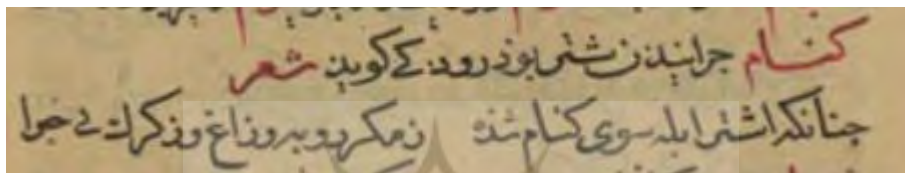 کنام جرانیدن شتر بوذ رودکی کوید شعر
جنانکه اشتر ابله سوی کنام شذه زمکر روبه و زاغ و زکرک بی خبرا